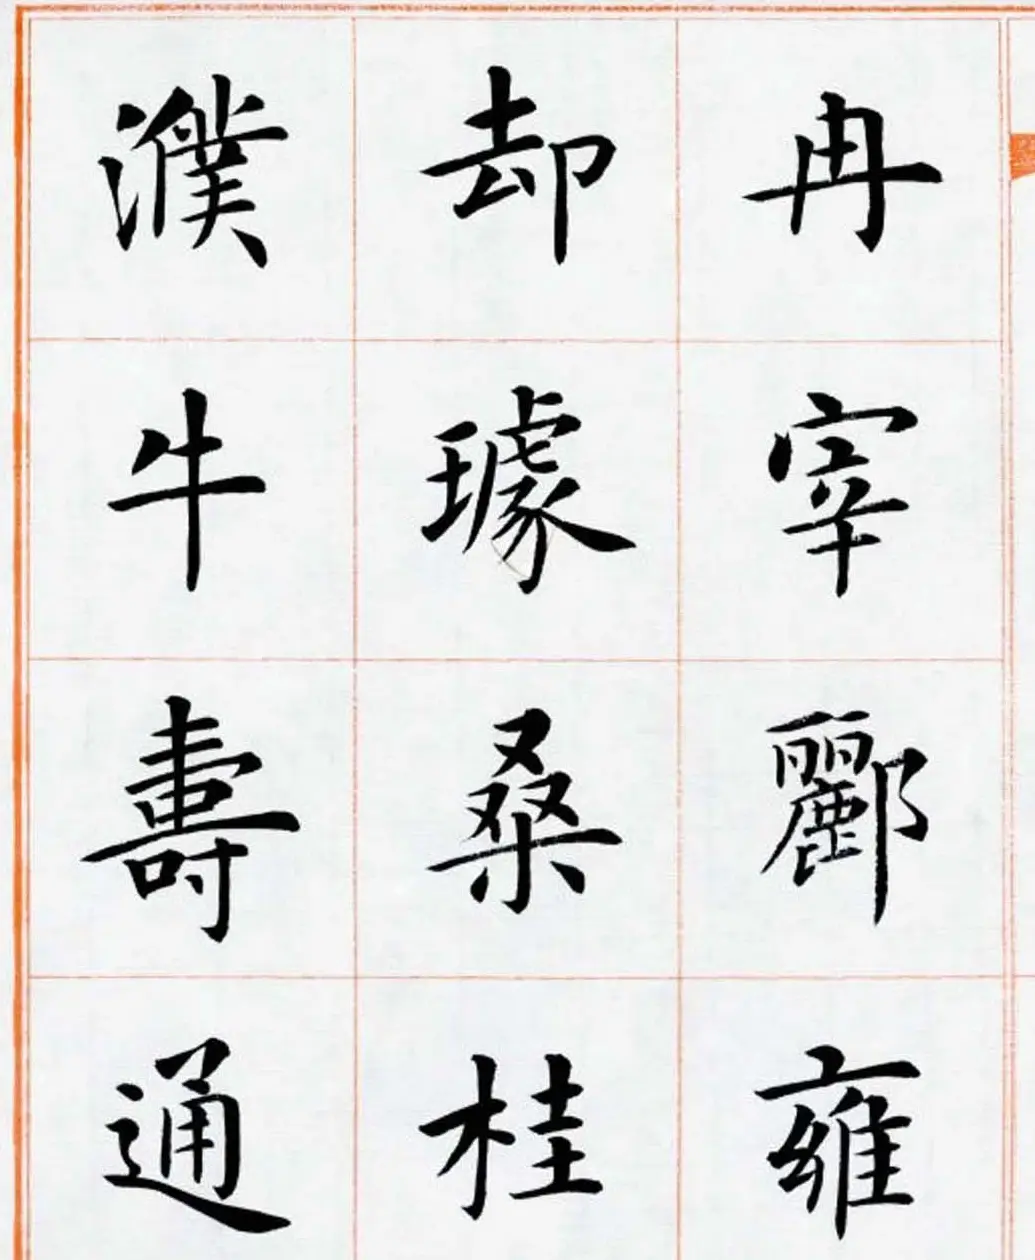 冉宰酈雍
却璩桑桂
濮牛壽通